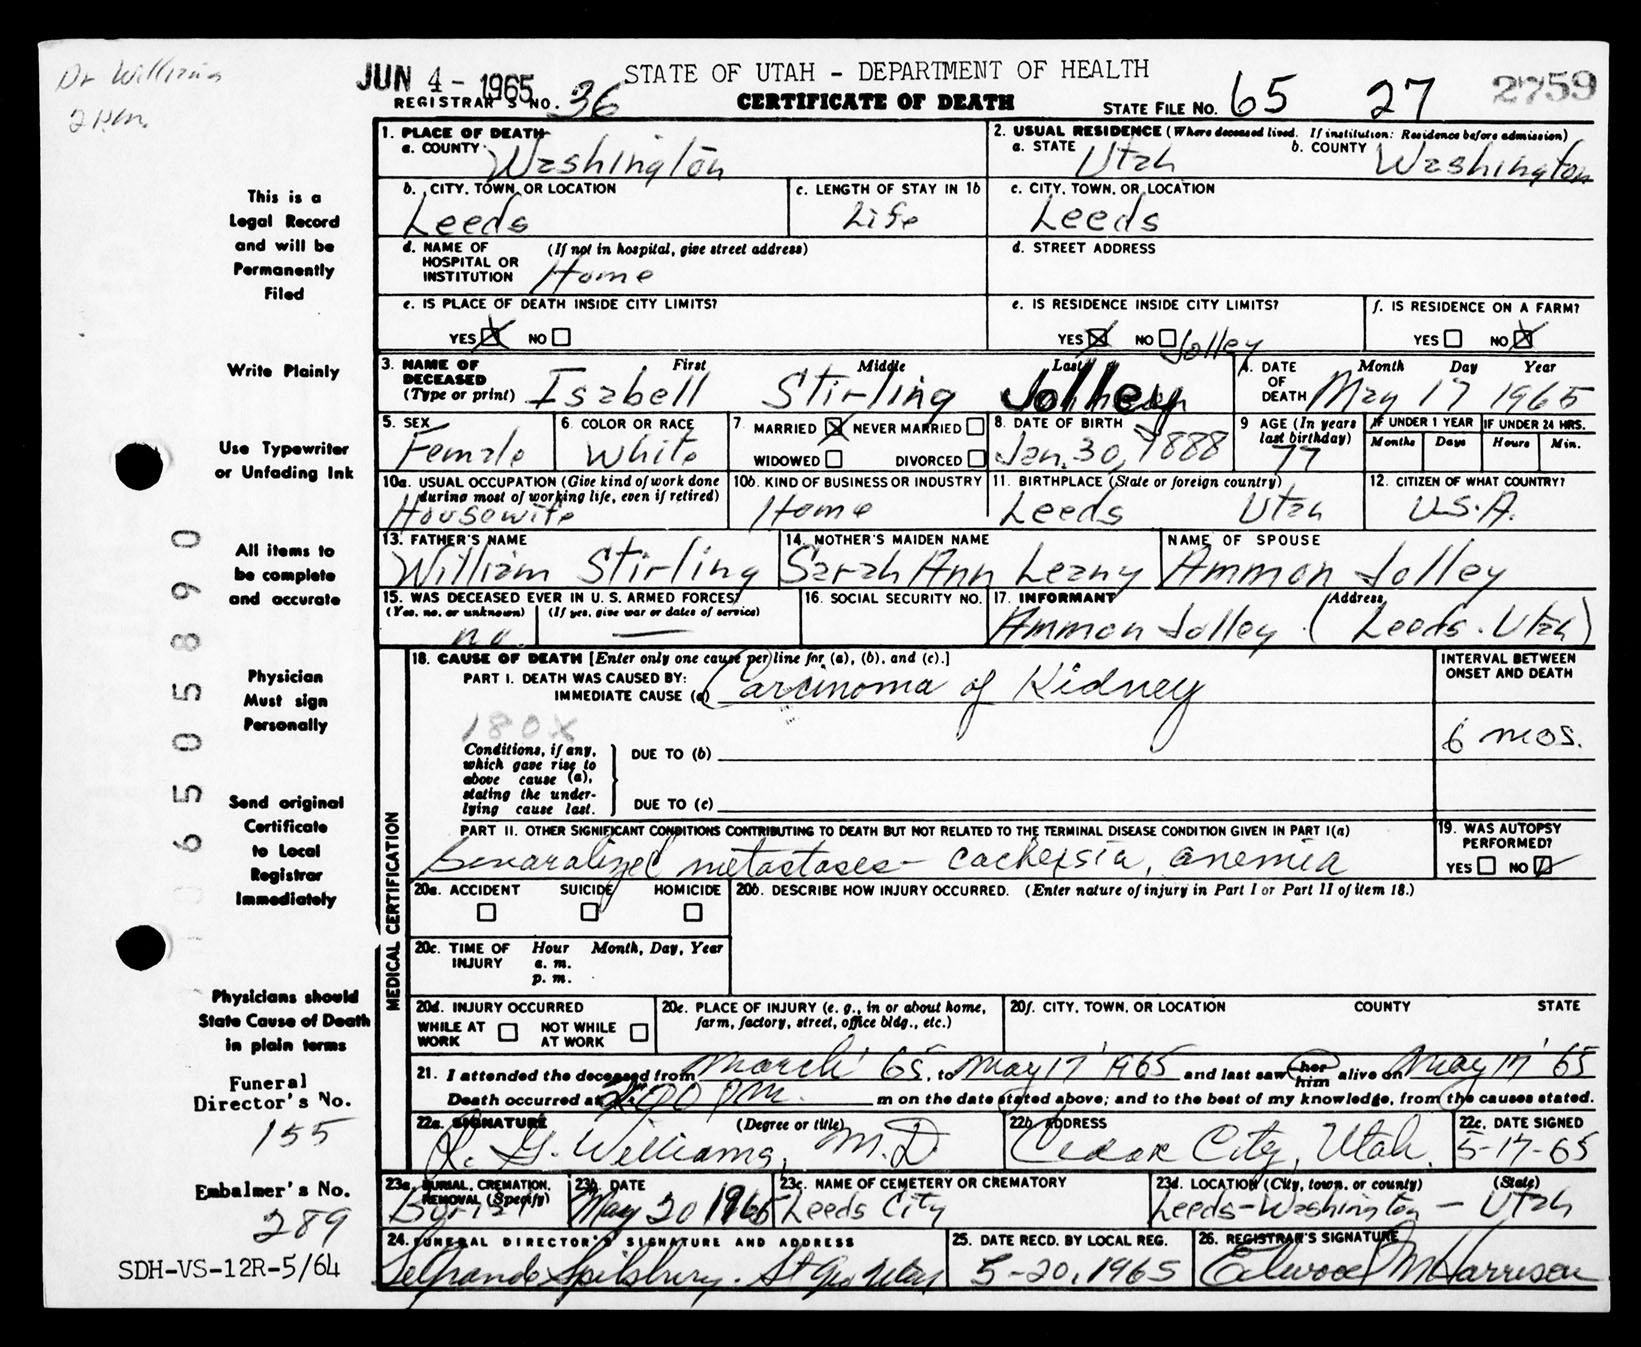 Dr Williams
2 P.M.
JUN 4 - 1965
STATE OF UTAH - DEPARTMENT OF HEALTH
REGISTRAR'S NO. 36
CERTIFICATE OF DEATH
STATE FILE NO. 65 27 2759
This is a
Legal Record
and will be
Permanently
Filed
Write Plainly
Use Typewriter
or Unfading Ink
All items to
be complete
and accurate
Physician
Must sign
Personally
Send original
Certificate
to Local
Registrar
Immediately
Physicians should
State Cause of Death
in plain terms
Funeral
Director's No.
155
Embalmer's No.
289
SDH-VS-12R-5/64
65 05890
1. PLACE OF DEATH
a. COUNTY Washington
2. USUAL RESIDENCE (Where deceased lived. If institution: Residence before admission)
a. STATE Utah b. COUNTY Washington
b. CITY, TOWN, OR LOCATION
Leeds
c. LENGTH OF STAY IN 1b
Life
c. CITY, TOWN, OR LOCATION
Leeds
d. NAME OF HOSPITAL OR INSTITUTION (If not in hospital, give street address)
Home
d. STREET ADDRESS
e. IS PLACE OF DEATH INSIDE CITY LIMITS?
YES X NO
e. IS RESIDENCE INSIDE CITY LIMITS?
YES X NO
f. IS RESIDENCE ON A FARM?
YES NO X
Jolley
3. NAME OF DECEASED (Type or print)
First Middle Last
Isabell Stirling Jolley
4. DATE OF DEATH Month Day Year
May 17 1965
5. SEX
Female
6. COLOR OR RACE
White
7. MARRIED X NEVER MARRIED
WIDOWED DIVORCED
8. DATE OF BIRTH
Jan. 30, 1888
9 AGE (In years last birthday)
77
IF UNDER 1 YEAR
Months Days
IF UNDER 24 HRS.
Hours Min.
10a. USUAL OCCUPATION (Give kind of work done during most of working life, even if retired)
Housewife
10b. KIND OF BUSINESS OR INDUSTRY
Home
11. BIRTHPLACE (State or foreign country)
Leeds Utah
12. CITIZEN OF WHAT COUNTRY?
U.S.A.
13. FATHER'S NAME
William Stirling
14. MOTHER'S MAIDEN NAME
Sarah Ann Leany
NAME OF SPOUSE
Ammon Jolley
15. WAS DECEASED EVER IN U.S. ARMED FORCES?
(Yes, no, or unknown) (If yes, give war or dates of service)
no. —
16. SOCIAL SECURITY NO.
17. INFORMANT Address
Ammon Jolley (Leeds. Utah)
MEDICAL CERTIFICATION
18. CAUSE OF DEATH [Enter only one cause per line for (a), (b), and (c).]
PART I. DEATH WAS CAUSED BY:
IMMEDIATE CAUSE (a) Carcinoma of Kidney
INTERVAL BETWEEN ONSET AND DEATH
6 mos.
180X
Conditions, if any, which gave rise to above cause (a), stating the underlying cause last.
DUE TO (b)
DUE TO (c)
PART II. OTHER SIGNIFICANT CONDITIONS CONTRIBUTING TO DEATH BUT NOT RELATED TO THE TERMINAL DISEASE CONDITION GIVEN IN PART I(a)
Generalized metastases - cachexia, anemia
19. WAS AUTOPSY PERFORMED?
YES NO
20a. ACCIDENT SUICIDE HOMICIDE
20b. DESCRIBE HOW INJURY OCCURRED. (Enter nature of injury in Part I or Part II of item 18.)
20c. TIME OF INJURY Hour a. m. p. m. Month, Day, Year
20d. INJURY OCCURRED
WHILE AT WORK NOT WHILE AT WORK
20e. PLACE OF INJURY (e. g., in or about home, farm, factory, street, office bldg., etc.)
20f. CITY, TOWN, OR LOCATION COUNTY STATE
21. I attended the deceased from March '65, to May 17 1965 and last saw her him alive on May 17 '65
Death occurred at 2:00 pm. m on the date stated above; and to the best of my knowledge, from the causes stated.
22a. SIGNATURE (Degree or title)
Williams, M.D.
22b ADDRESS
Cedar City, Utah.
22c. DATE SIGNED
5-17-65
23a. BURIAL, CREMATION, REMOVAL (Specify)
Burial
23b. DATE
May 20 1965
23c. NAME OF CEMETERY OR CREMATORY
Leeds City
23d. LOCATION (City, town, or county) (State)
Leeds-Washington - Utah
24. FUNERAL DIRECTOR'S SIGNATURE AND ADDRESS
Spilsbury. St Geo Utah
25. DATE RECD. BY LOCAL REG.
5-20, 1965
26. REGISTRAR'S SIGNATURE
Elwood M Harrison